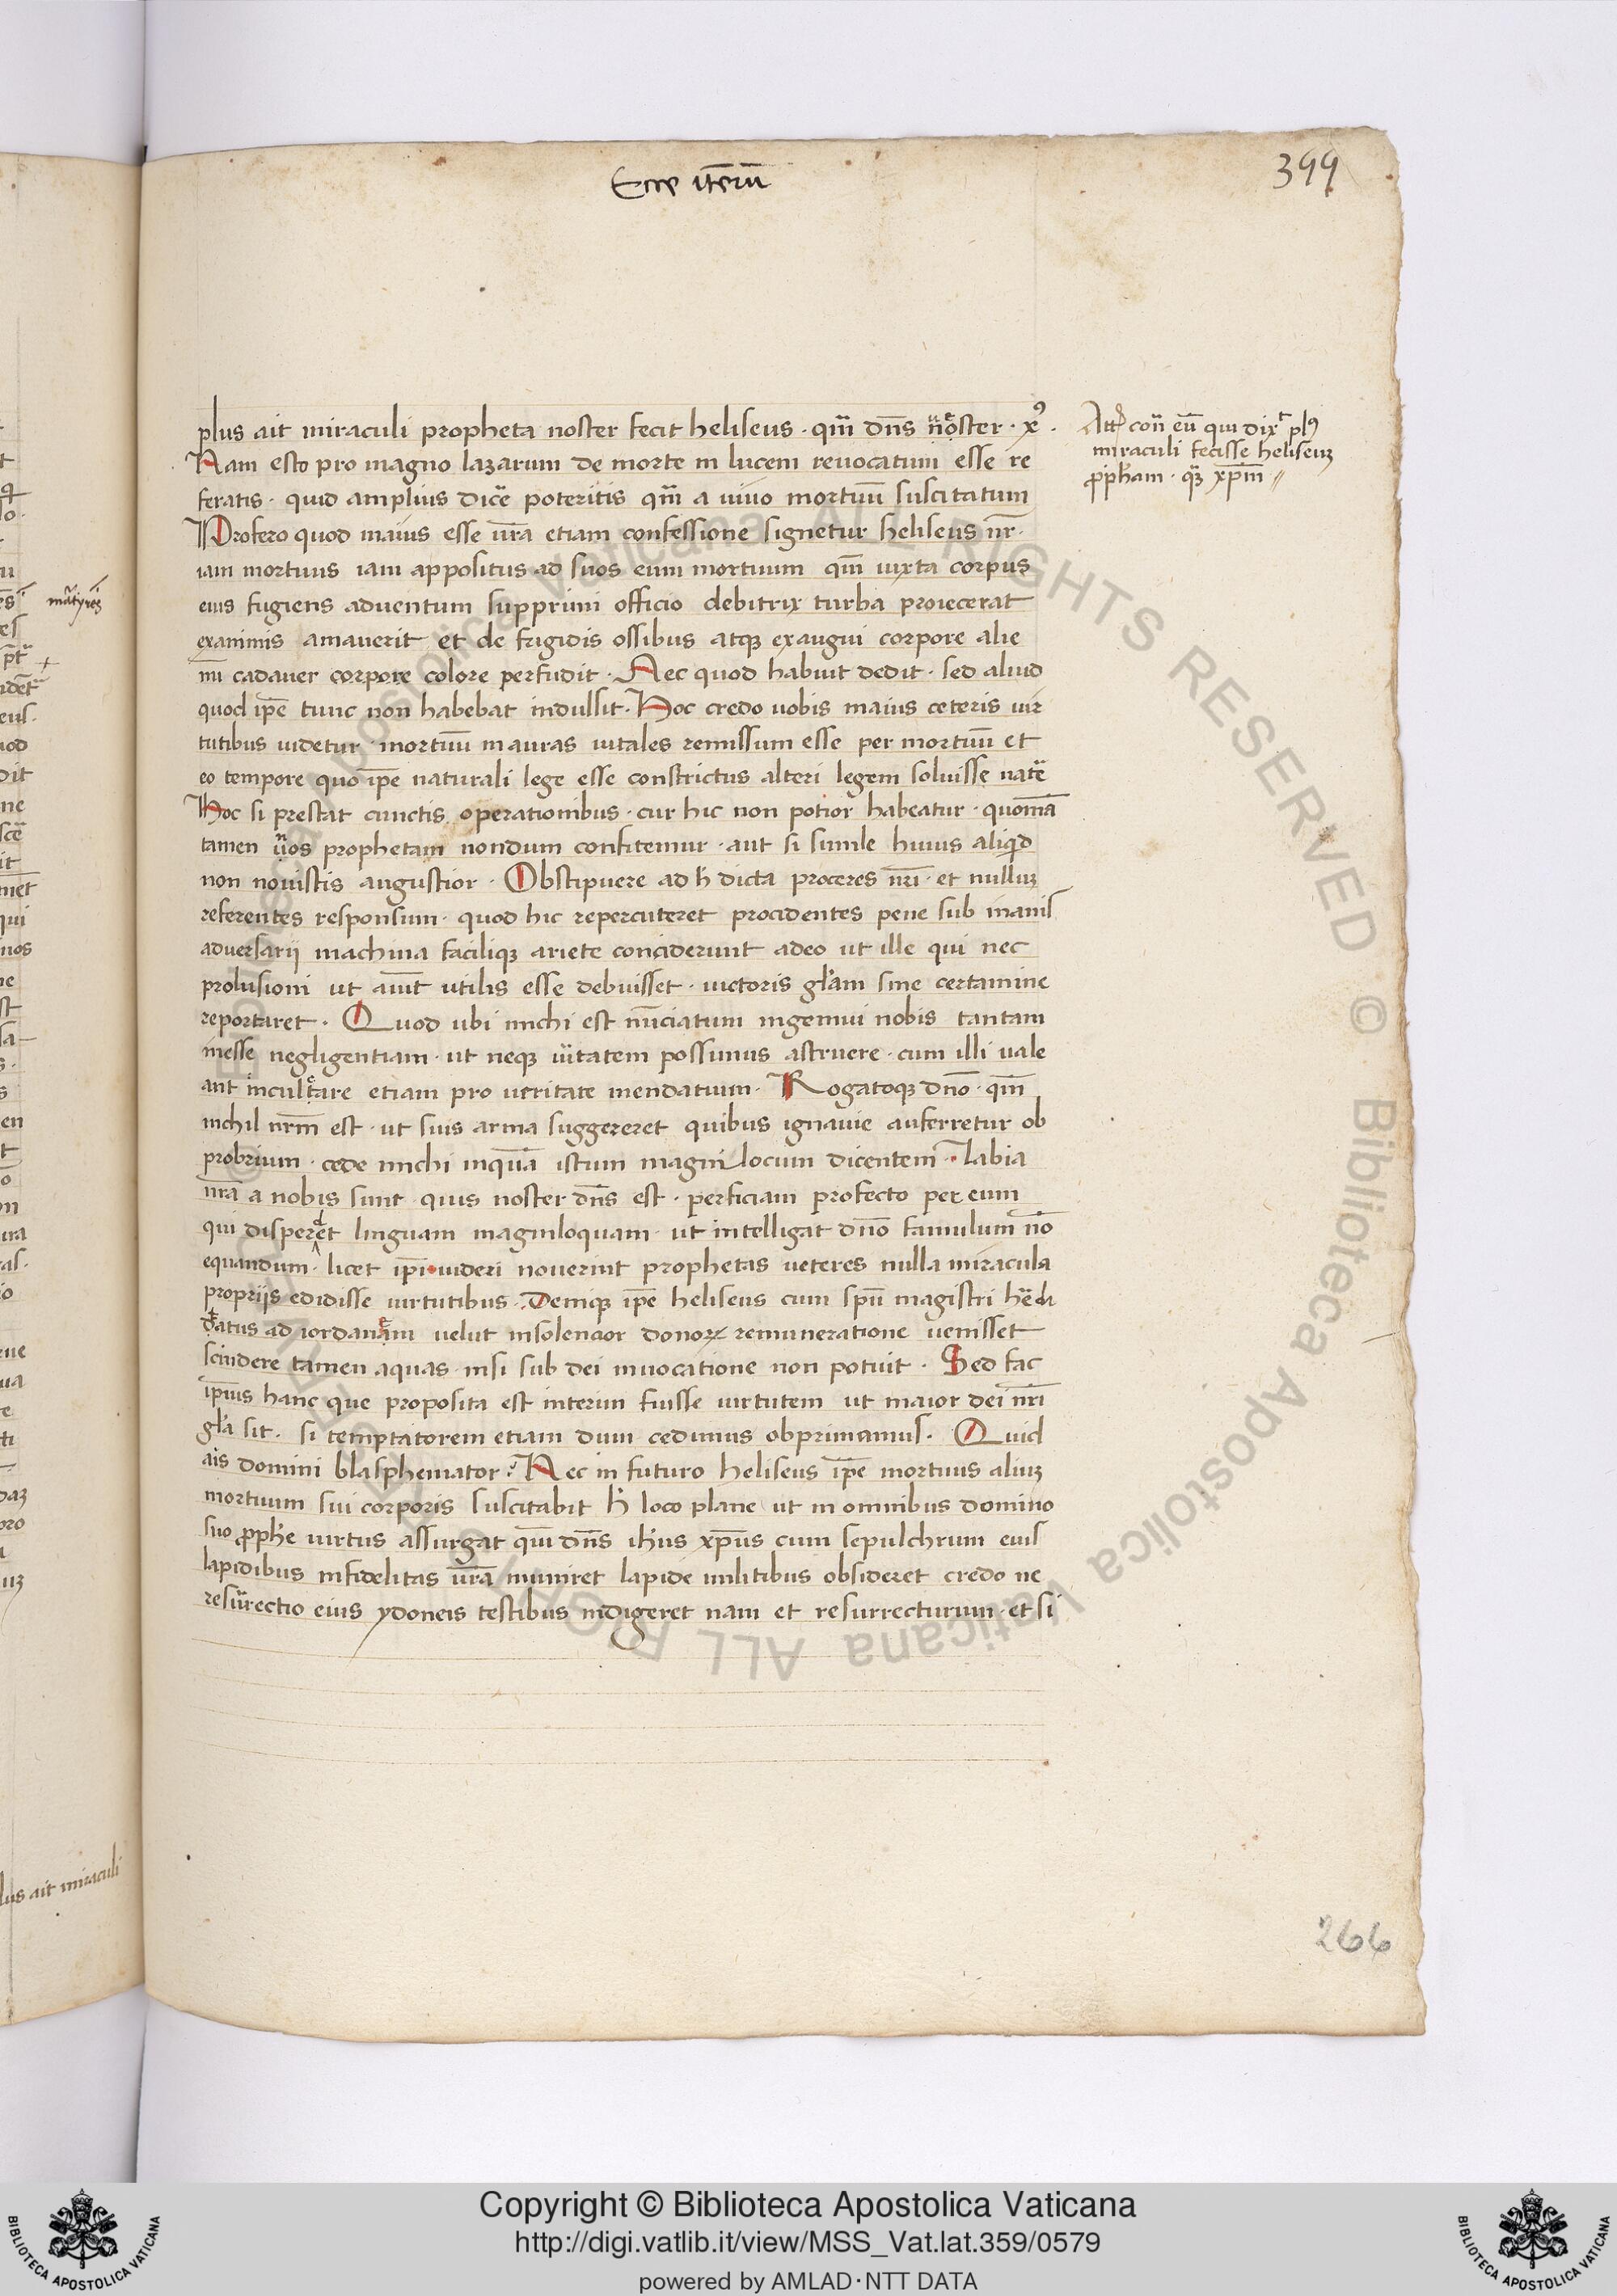 Ecce iterũ
399
plus ait miraculi propheta noster fecit heliseus · qm̃ dñs noster · xꝰ ·
Nam esto pro magno lazarum de morte in lucem reuocatum esse re
feratis · quid amplius dicẽ poteritis qm̃ a uiuo mortuũ suscitatum
Profero quod maius esse ur̃a etiam confessione signetur heliseus nr̃ ·
iam mortuus iam appositus ad suos eum mortuum qm̃ iuxta corpus
eius fugiens aduentum supprimi officio debitrix turba proiecerat
exanimis amauerit et de frigidis ossibus atqꝫ exangui corpore alie
nũ cadauer corpore colore perfudit · Nec quod habuit dedit · sed aliud
quod ip̃e tunc non habebat indulsit · Hoc credo uobis maius ceteris uir
tutibus uidetur · mortuũ in auras uitales remissum esse per mortuũ et
eo tempore quo ip̃e naturali lege esse constrictus alteri legem soluisse natẽ
Hoc si prestat cunctis operationibus · cur hic non potior habeatur · quoniã
tamen uos prophetam nondum confitemur · aut si simile huius aliqid
non nouistis angustior · Obstipuere ad h̃ dicta proceres nr̃i · et nulluꝫ
referentes responsum · quod hic repercuteret procidentes pene sub inanis
aduersarij machina faciliqꝫ ariete conciderunt adeo ut ille qui nec
prolusioni ut aiũt utilis esse debuisset · uictoris glãm sine certamine
reportaret · Quod ubi michi est nũciatum ingemui nobis tantam
inesse negligentiam · ut neqꝫ uĩtatem possimus astruere · cum illi uale
ant inculcare etiam pro ueritate mendatium · Rogatoqꝫ dño · qm̃
nichil nr̃m est · ut suis arma suggereret quibus ignauie auferretur ob
probrium · cede michi inquã istum magnilocum dicentem · labia
nr̃a a nobis sunt · quis noster dñs est · perficiam profecto per eum
qui disperdet linguam magniloquam · ut intelligat dño famulum nõ
equandum · licet ip̃i uideri nouerint prophetas ueteres nulla miracula
proprijs edidisse uirtutibus · Deniqꝫ ip̃e heliseus cum spũ magistri hẽdi
datus ad iordanem uelut insolencior donoꝝ remuneratione uenisset
scindere tamen aquas nisi sub dei inuocatione non potuit · Sed fac
ip̃ius hanc que proposita est interim fuisse uirtutem ut maior dei nr̃i
glã sit · si temptatorem etiam dum cedimus obprimamus · Quid
ais domini blasphemator ? Nec in futuro heliseus ip̃e mortuus aliuꝫ
mortuum sui corporis suscitabit h̃ loco plane ut in omnibus domino
suo ꝓphe uirtus assurgat qm̃ dñs ihũs xp̃us cum sepulchrum eius
lapidibus infidelitas ur̃a muniret lapide militibus obsideret credo ne
resurrectio eius ydoneis testibus indigeret nam et resurrecturum · et si
con̈ eũ qui dixͭ plꝰ
miraculi fecisse heliseuꝫ
ꝓpham · qꝫ xp̃m //
266
mãtyres
lus ait miraculi
Copyright © Biblioteca Apostolica Vaticana
http://digi.vatlib.it/view/MSS_Vat.lat.359/0579
powered by AMLAD·NTT DATA
BIBLIOTECA APOSTOLICA VATICANA
BIBLIOTECA APOSTOLICA VATICANA
© Biblioteca Apostolica Vaticana ALL RIGHTS RESERVED